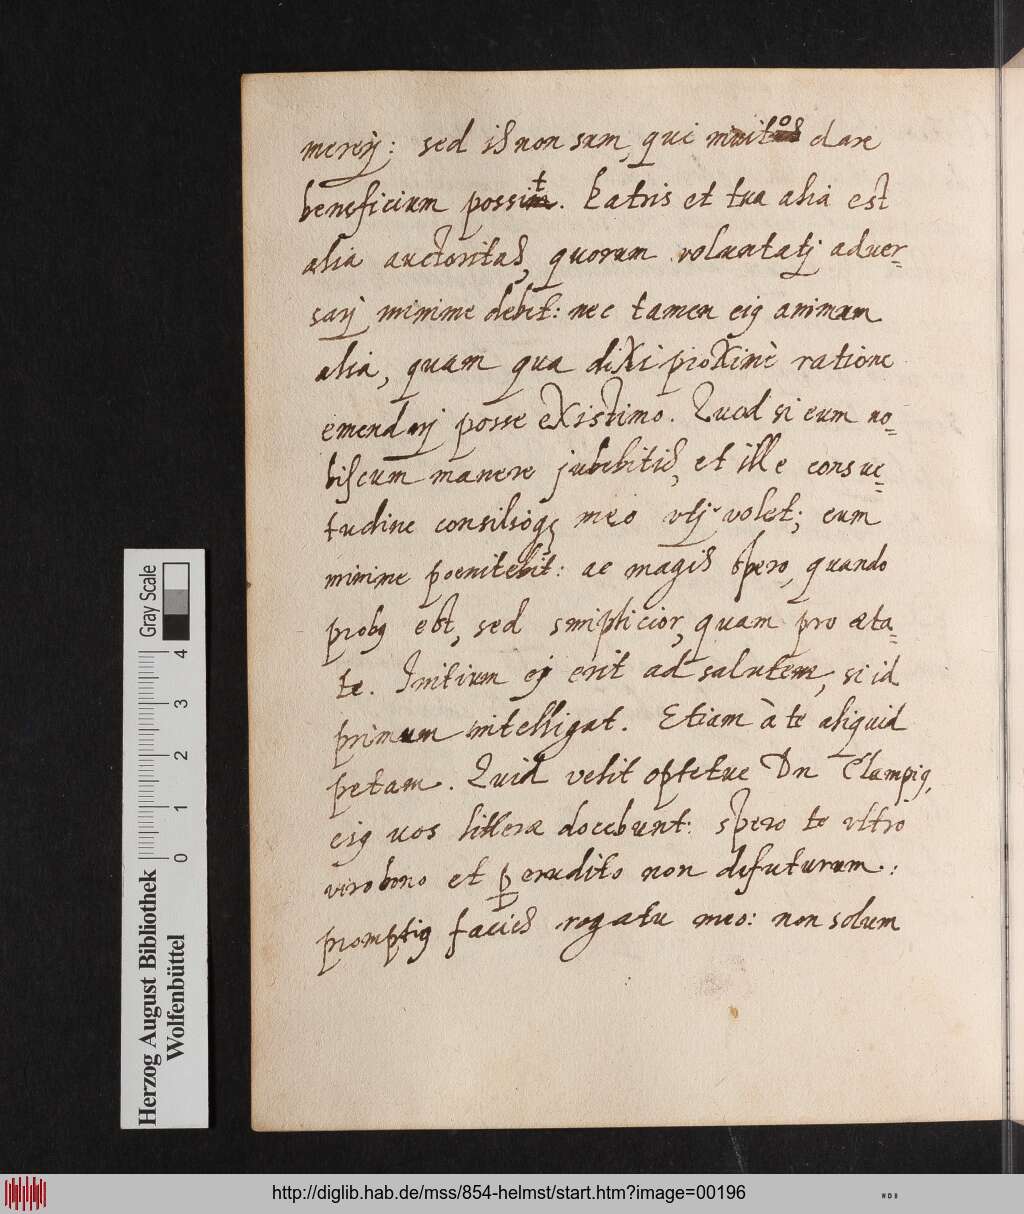 mererj: sed is non sum, qui inuito dare
beneficium possit. Patris et tua alia est
alia auctoritas, quorum voluntatj aduer=
sarj minime debet: nec tamen eiꝰ animum
alia, quam qua dixi proximè ratione
emendarj posse existimo. Quod si eum no=
biscum manere jubebitis, et ille consue=
tudine consilioqꝫ meo vtj volet; eum
minime poenitebit: ac magis spero, quando
probꝰ est, sed simplicior, quam pro æta=
te. Initium ej erit ad salutem, si id
primum intelligat. Etiam à te aliquid
petam. Quid velit optetue Dn Clampiꝰ,
eiꝰ uos litteræ docebunt: spero te vltro
viro bono et ꝑerudito non defuturum:
promptiꝰ facies rogatu meo: non solum
Herzog August Bibliothek
Wolfenbüttel
0 1 2 3 4
Gray Scale
http://diglib.hab.de/mss/854-helmst/start.htm?image=00196